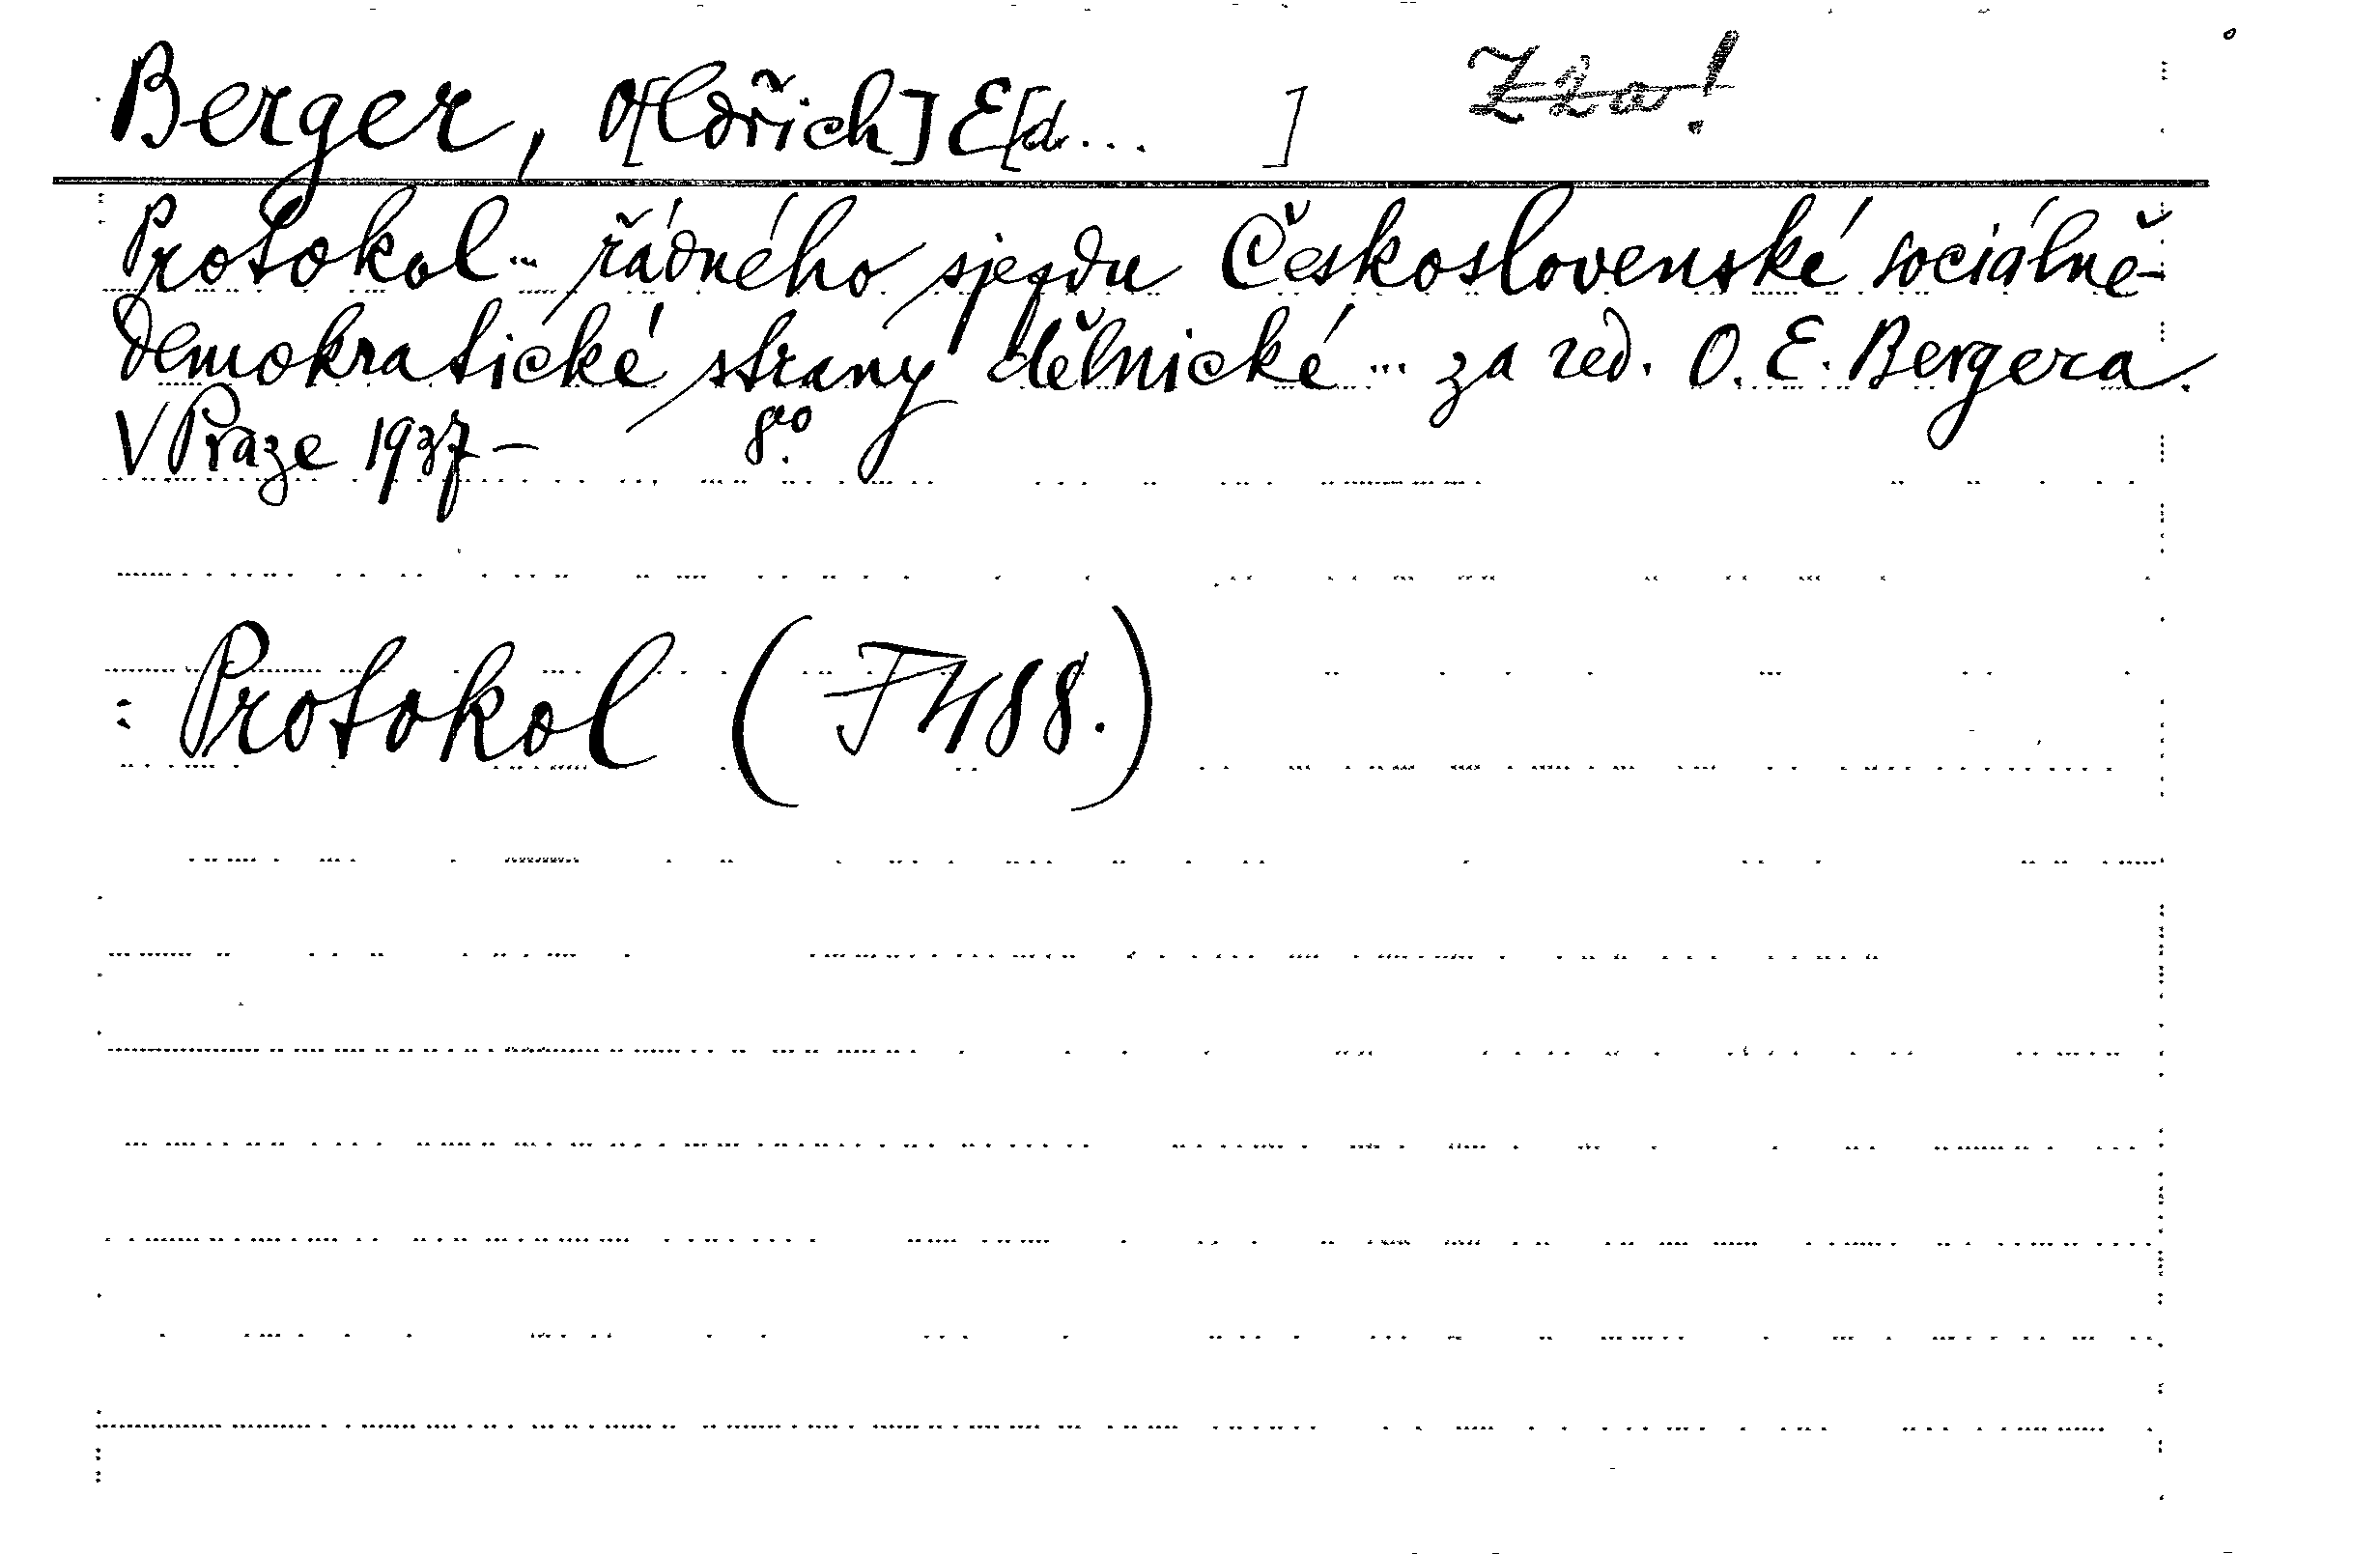 Berger, O[ldřich] E[d... ]
Protokol... řádného sjezdu Československé sociálně-
demokratické strany dělnické... za red. O. E. Bergera.
V Praze 1937- 8°.
: Protokol (F488.)